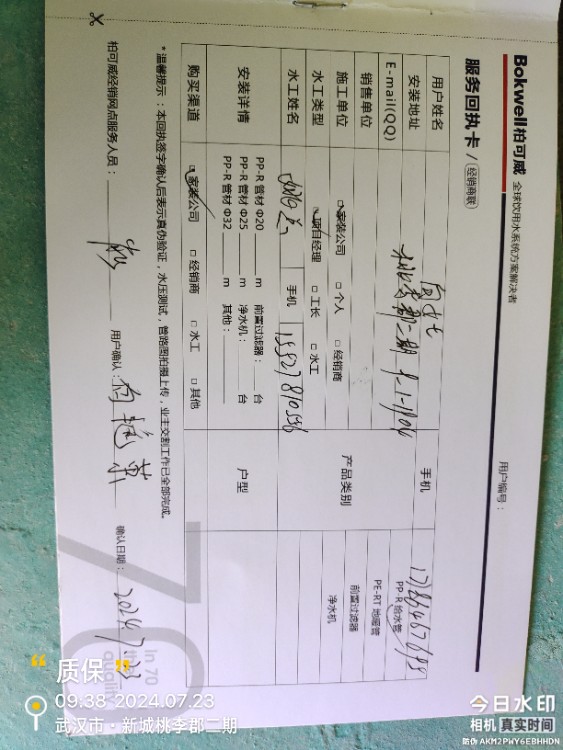 Bokwell柏可威 全球饮用水系统方案解决者
用户编号：
服务回执卡 / 经销商联
用户姓名 手机
安装地址 9-1-1904
E-mail(QQ)
销售单位
施工单位 家装公司 □ 个人 □ 经销商
水工类型 项目经理 □ 工长 □ 水工
水工姓名 手机 15527810556
产品类别 PP-R 给水管
PE-RT 地暖管
前置过滤器
净水机
安装详情 PP-R 管材 Φ20 m 前置过滤器： 台
PP-R 管材 Φ25 m 净水机： 台
PP-R 管材 Φ32 m 其他：
户型
购买渠道 家装公司 □ 经销商 □ 水工 □ 其他
*温馨提示：本回执签字确认后表示真伪验证，水压测试，管路图拍摄上传，业主交割工作已全部完成。
柏可威经销网点服务人员： 用户确认： 确认日期： 2024.7.23
In 70
the
quality
“ 质保 ”
09:38 2024.07.23
武汉市 · 新城桃李郡二期
今日水印
相机 真实时间
防伪 AKM2PWY6EBHHDN